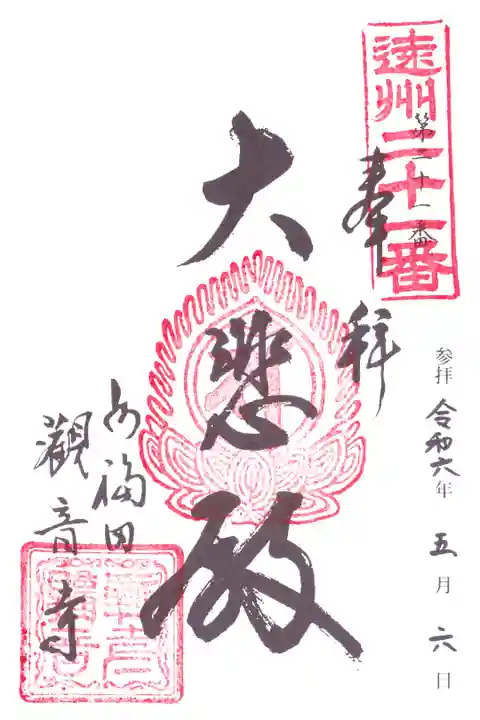 遠州二十一番
第二十一番
奉拝
参拝 令和六年 五月 六日
大悲殿
福田
觀音寺